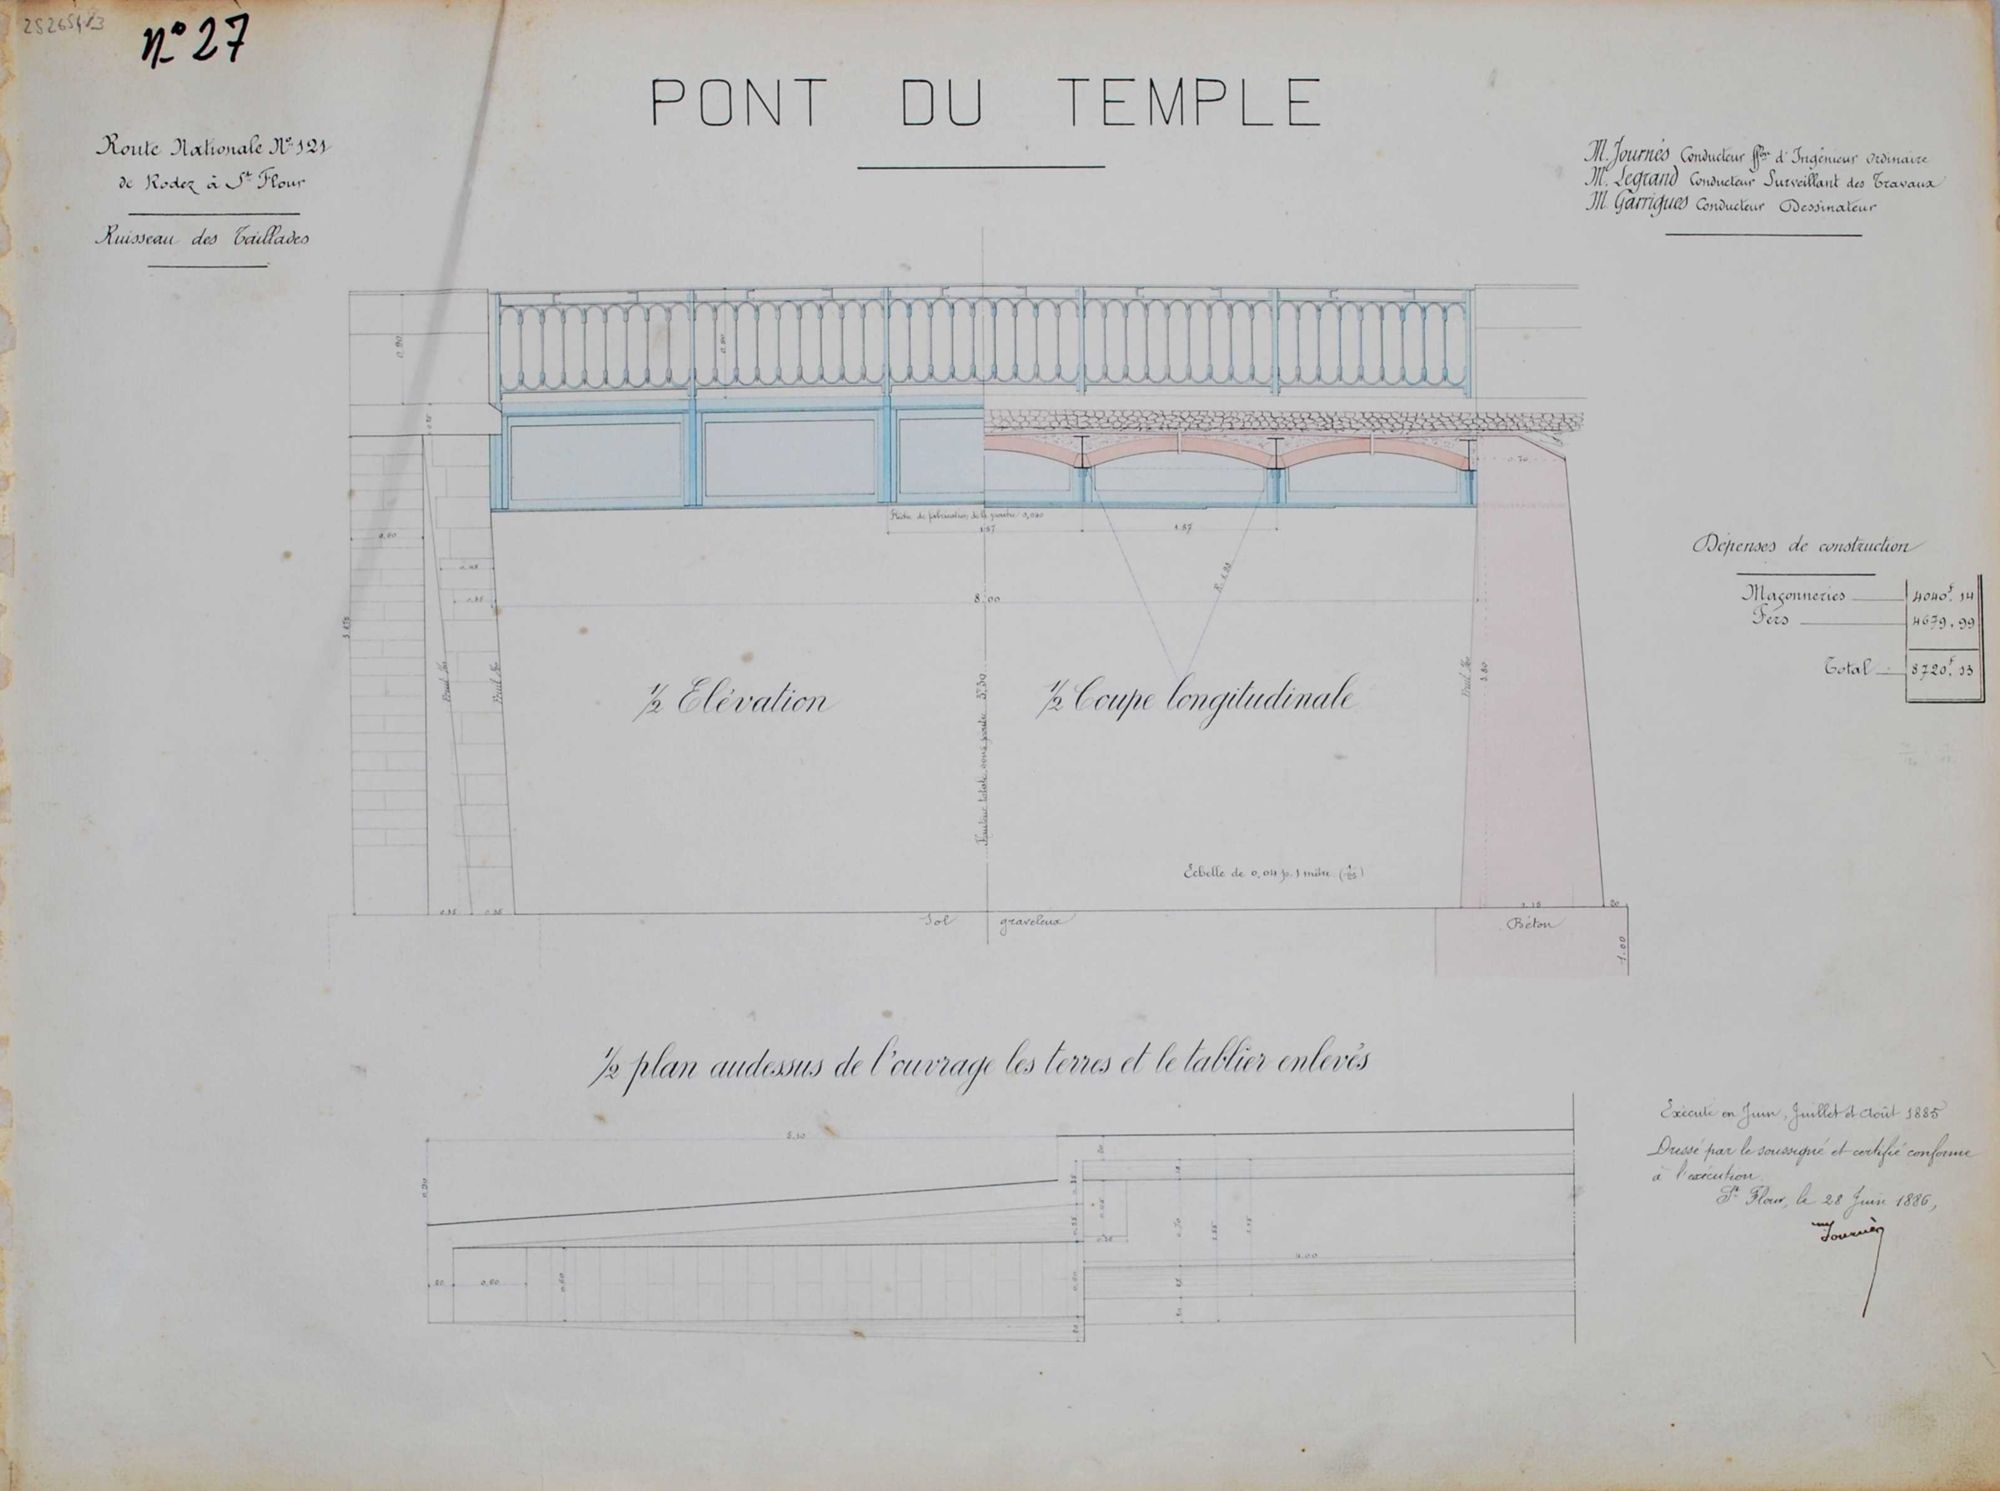 N° 27
PONT DU TEMPLE
Route Nationale N° 121
de Rodez à St Flour
Ruisseau des Taillades
M. Journès Conducteur ffon d'Ingénieur Ordinaire
M. Legrand Conducteur Surveillant des Travaux
M. Garrigues Conducteur Dessinateur
0,90
0,90
0.70
Flèche de fabrication de la poutre 0,020
1.57
1.57
R. 1.25
8,00
0.45
0.35
3.80
Dépenses de construction
Maçonneries 4040f. 14
Fers 4679. 99
Total 8720f. 13
½ Elévation
½ Coupe longitudinale
Hauteur totale sous poutre
Echelle de 0,04 p. 1 mètre (1/25)
Sol graveleux
0.35
0.35
1.15
20
Béton
1.00
½ plan audessus de l'ouvrage les terres et le tablier enlevés
5,10
4.00
20
0,60
0,60
Exécuté en Juin, Juillet et Août 1885
Dressé par le soussigné et certifié conforme
à l'exécution
St Flour, le 28 Juin 1886,
Journès